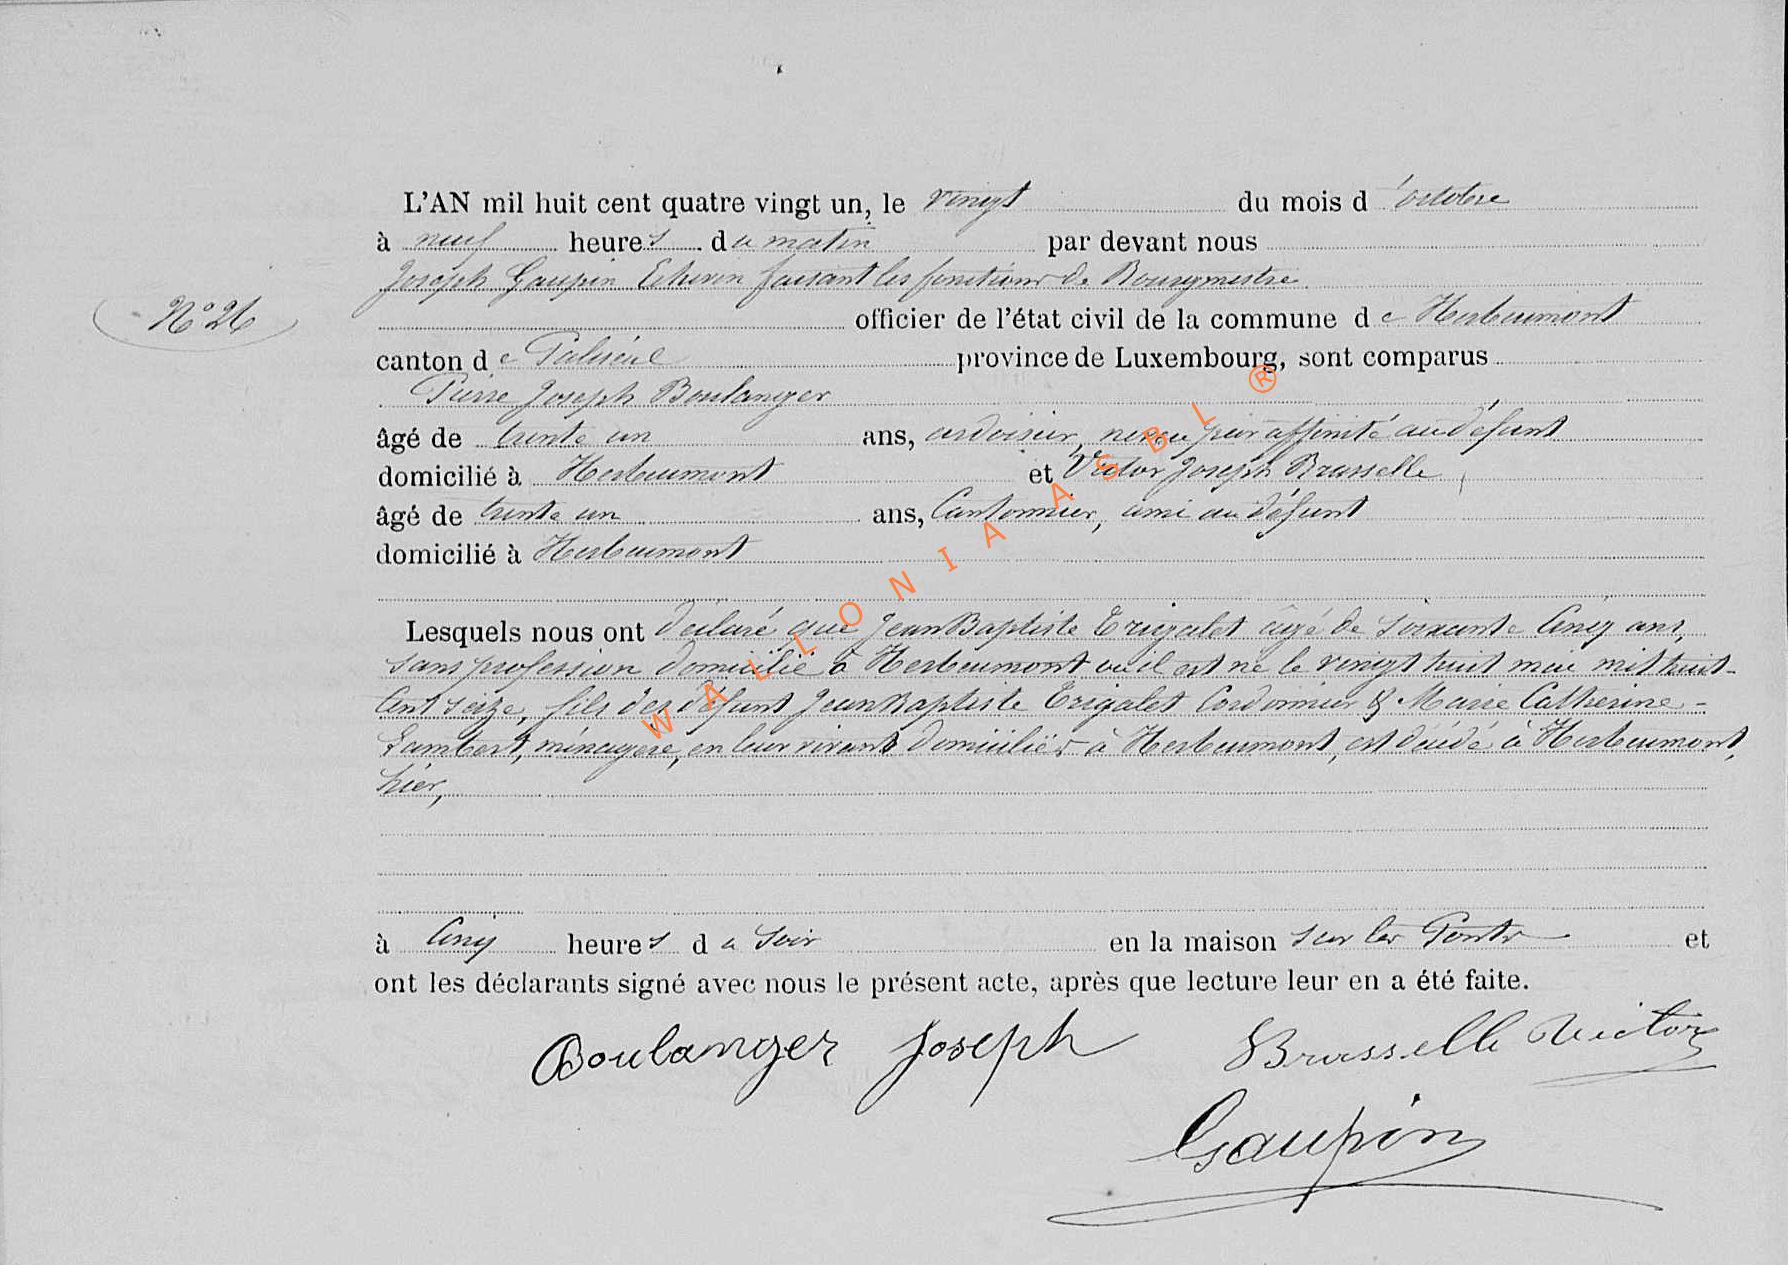 L'AN mil huit cent quatre vingt un, le vingt du mois d'octobre
à neuf heures du matin par devant nous
Joseph Gaupin Echevin faisant les fonctions de Bourgmestre
N° 26
officier de l'état civil de la commune de Herbeumont
canton de Paliseul province de Luxembourg, sont comparus
Pierre Joseph Boulanger
âgé de trente un ans, ardoisier, neveu par affinité au défunt
domicilié à Herbeumont et Victor Joseph Brasselle
âgé de trente un ans, Cantonnier, ami au défunt
domicilié à Herbeumont
Lesquels nous ont déclaré que Jean Baptiste Trigalet âgé de soixante cinq ans,
sans profession domicilié à Herbeumont où il est né le vingt huit mai mil huit-
cent seize, fils des défunt Jean Baptiste Trigalet Cordonnier & Marie Catherine-
Lambert, ménagère, en leur vivant domiciliés à Herbeumont, est décédé à Herbeumont,
hier,
à cinq heures du soir en la maison sur les Ponts et
ont les déclarants signé avec nous le présent acte, après que lecture leur en a été faite.
Boulanger Joseph Brasselle Victor
Gaupin
WALLONIA ASBL ®